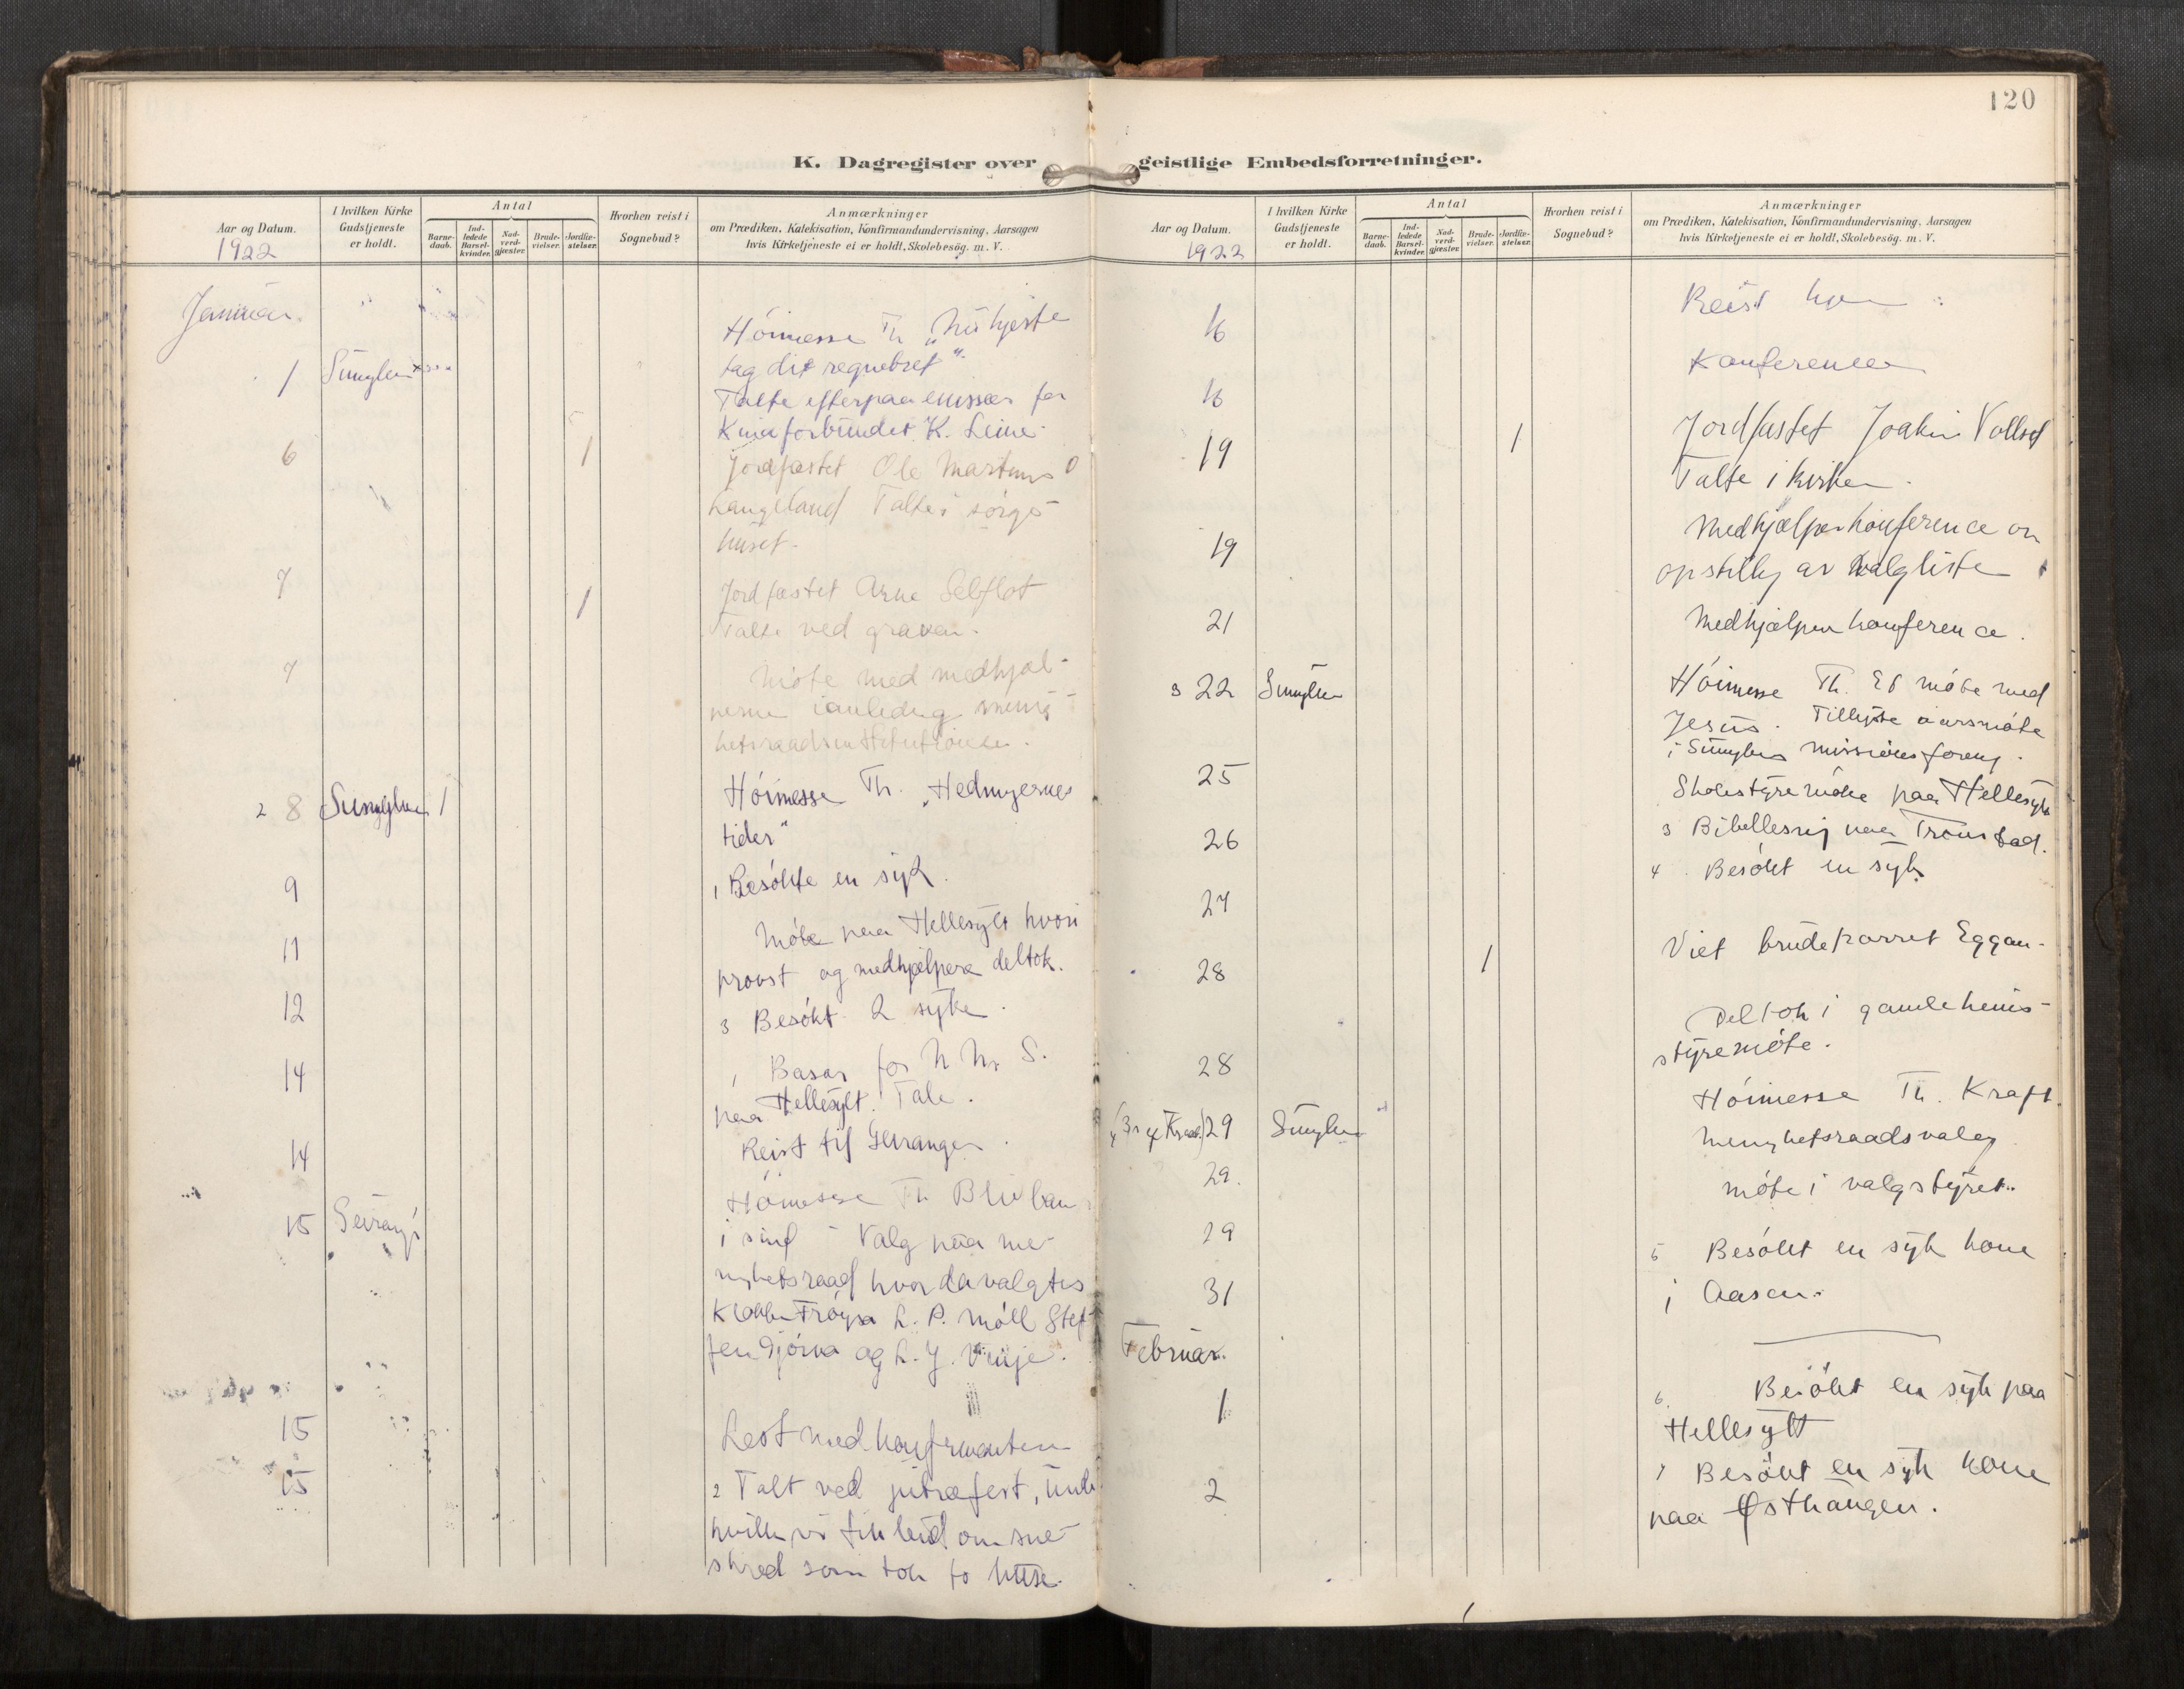 120
K. Dagregister over
geistlige Embedsforretninger.
Aar og Datum.
I hvilken Kirke Gudstjeneste er holdt.
Antal
Barne-daab.
Ind-ledede Barsel-kvinder.
Nad-verd-gjæster.
Brude-vielser.
Jordfæ-stelser.
Hvorhen reist i Sognebud?
Anmærkninger
om Prædiken, Katekisation, Konfirmandundervisning, Aarsagen
hvis Kirketjeneste ei er holdt, Skolebesøg. m. V.
1922
Januar.
1 Sunylven
Höimesse Th. „Mit hjerte
tag dit regnebret“
Talte efterpaa emissær for
Kinaforbundet K. Leine.
6 1 Jordfæstet Ole Martinus
Langeland Talte i sörge
huset.
7 1 Jordfæstet Arne
Talte ved graven.
7 Möte med medhjæl-
perne i anledng menig
hetsraadsinstitutionen.
2 8 Sunnylven 1 Höimesse Th. „Hedningernes
tider“
9 1 Besökte en syk.
11 Möte paa Hellesylt hvori
provst og medhjælpere deltok.
12 3 Besökt 2 syke.
14 1 Basar for N. M. S.
paa Hellesylt. Tale.
14 Reist til Geiranger.
15 Geiranger Höimesse Th
i sind - Valg paa me-
nighetsraad hvor da valgtes
L. P. Möll Stef-
fen Gjörva og L. J. Vinje.
15 Lest med konfirmantene
15 2 Talt ved jutræfest, under
hvilken vi fik bud om sne-
skred som tok to huse.
Aar og Datum.
I hvilken Kirke Gudstjeneste er holdt.
Antal
Barne-daab.
Ind-ledede Barsel-kvinder.
Nad-verd-gjæster.
Brude-vielser.
Jordfæ-stelser.
Hvorhen reist i Sognebud?
Anmærkninger
om Prædiken, Katekisation, Konfirmandundervisning, Aarsagen
hvis Kirketjeneste ei er holdt, Skolebesøg. m. V.
1922
16 Reist hjem.
16 Konferencer
19 1 Jordfæstet Joakim Vollset
Talte i kirken.
19 Medhjælperkonference om
opstilling av valgliste
21 Medhjælper konference.
3 22 Sunylven Höimesse Th. Et möte med
Jesus. Tillyste aarsmöte
i Sunylven missionsforeng.
25 Skolestyremöte paa Hellesylt
26 3 Bibellesning paa Tronstad.
27 4 Besökt en syk
28 1 Viet brudeparret Eggan.
28 Deltok i gamlehems-
styremöte.
29 Sunylven Höimesse Th. Kraft.
29. Menighetsraadsvalg
29 möte i valgstyret.
31 5 Besökt en syk kone
i Aasen.
Februar.
1 6. Besökt en syk paa
Hellesylt
2 7 Besökt en syk kone
paa Østhaugen.